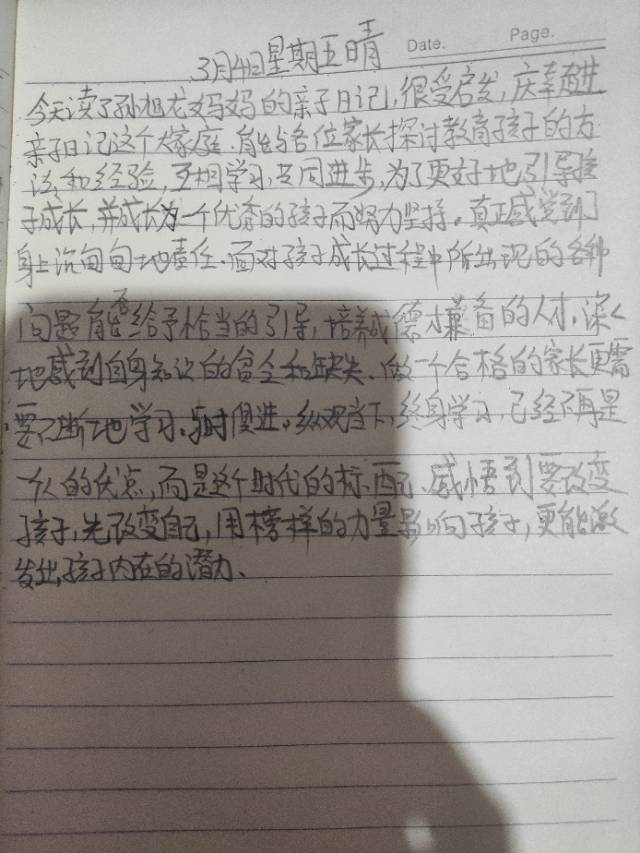 3月4日星期五晴
Date. Page.
今天读了孙旭龙妈妈的亲子日记,很受启发,庆幸走进
亲子日记这个大家庭.能与各位家长探讨教育孩子的方
法和经验,互相学习,共同进步,为了更好地引导孩
子成长,并成长为一个优秀的孩子而努力坚持。真正感觉到了
身上沉甸甸地责任.面对孩子成长过程中所出现的各种
问题能否给予恰当的引导,培养成德才兼备的人才,深深
地感到自身知识的贫乏和缺失.做一个合格的家长更需
要不断地学习.与时俱进。纵观当下,终身学习,已经不再是
个人的优点,而是这个时代的标配.感悟到要改变
孩子,先改变自己,用榜样的力量影响孩子,更能激
发出孩子内在的潜力.